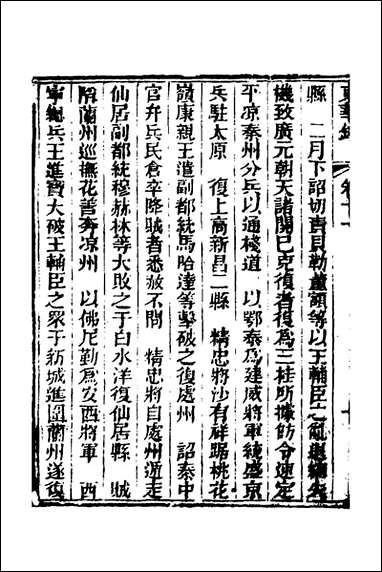 東華錄 卷十
縣 二月下詔切責貝勒董額等以王輔臣之亂退
機致廣元朝天諸關已克復者復為三桂所據飭令速定
平凉秦州分兵以通棧道 以鄂秦為建威將軍統盛京
兵駐太原 復上高新昌二縣 精忠將沙有祥踞桃花
嶺康親王遣副都統馬哈達等擊破之復處州 詔秦中
官弁兵民倉卒降賊者悉赦不問 精忠將自處州遁走
仙居副都統穆赫林等大敗之于白水洋復仙居縣 賊
陷蘭州巡撫花善奔凉州 以佛尼勒為安西將軍 西
寧總兵王進寶大破王輔臣之眾于新城進圍蘭州遂復